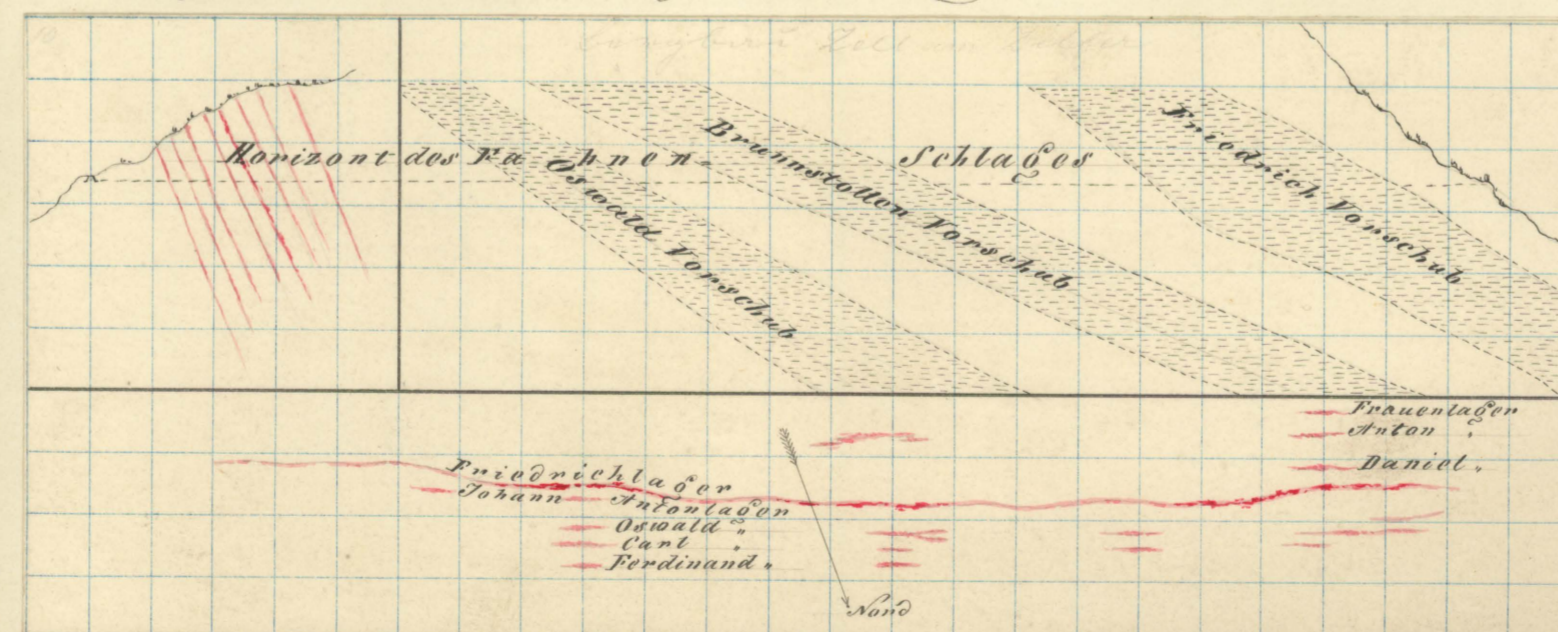 Horizont des Fahnen- Schlages
Oswald Vorschub
Brunnstollen Vorschub
Friedrich Vorschub
Frauenlager
Anton "
Daniel "
Friedrichlager
Johann
Antonlagen
Oswald "
Carl "
Ferdinand "
Nord